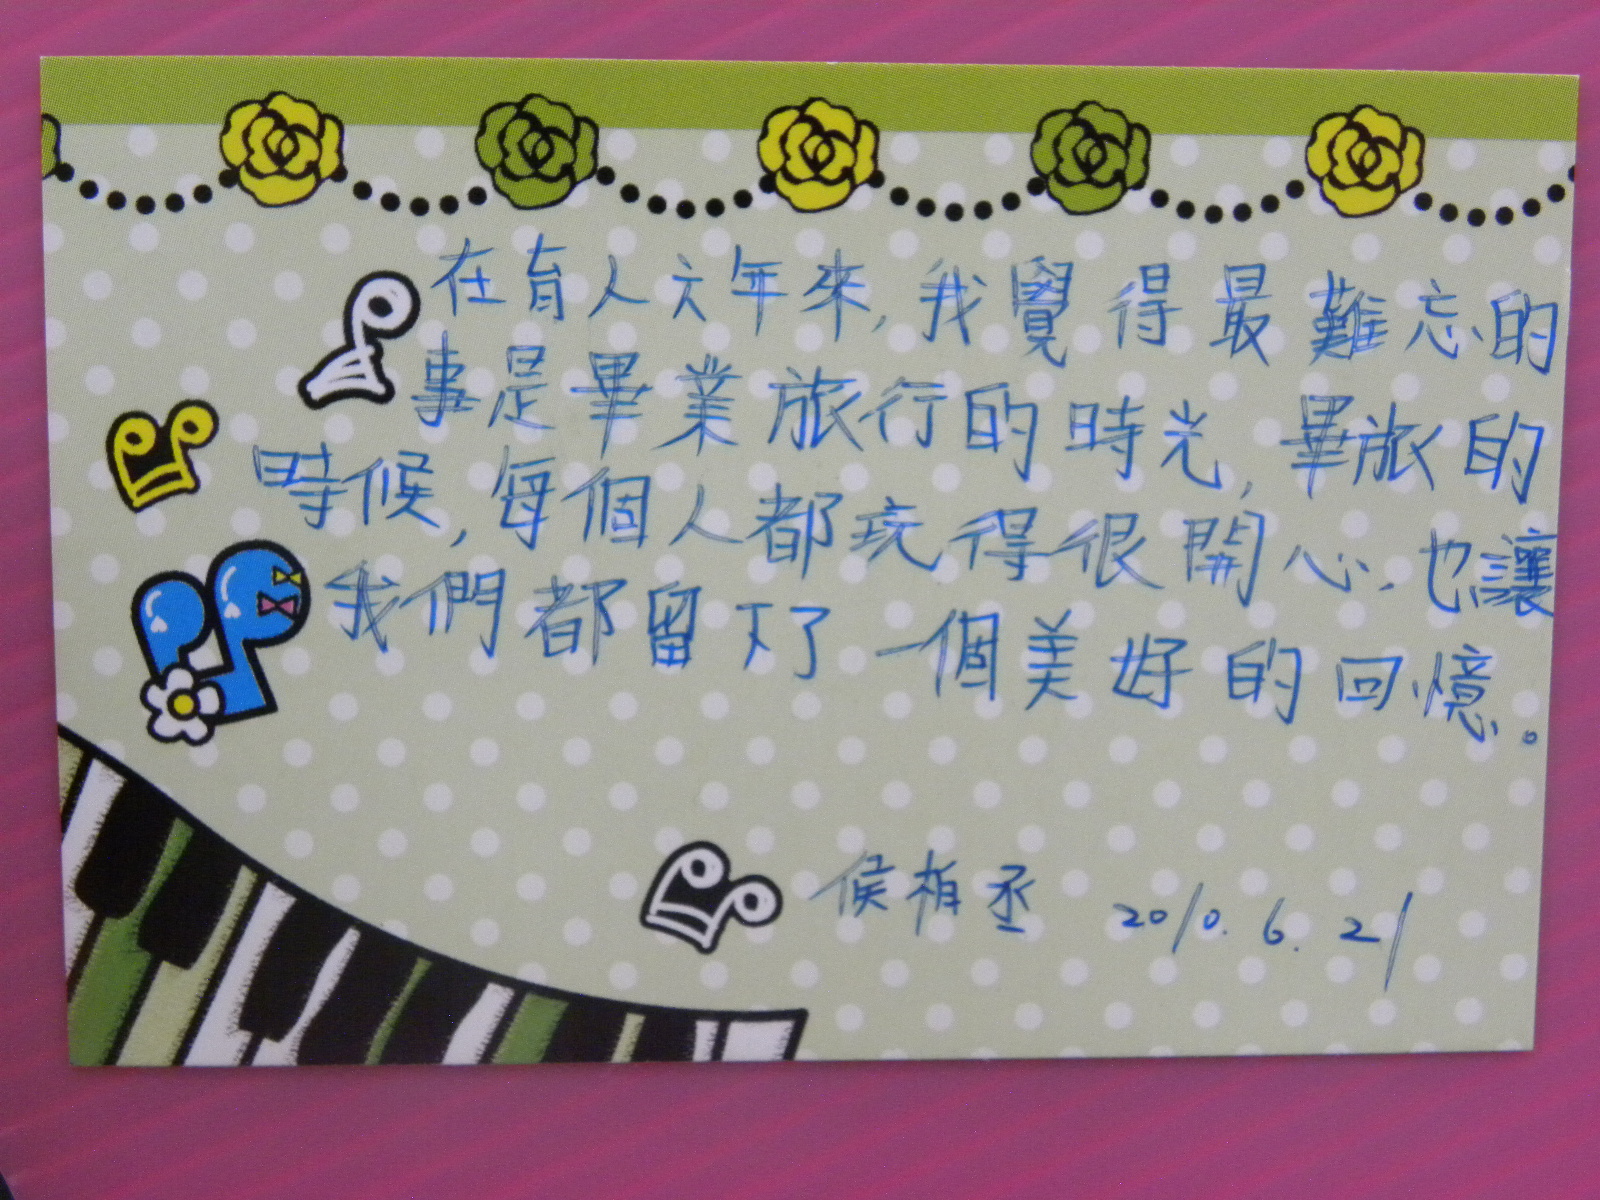 在育人六年來,我覺得最難忘的
事是畢業旅行的時光,畢旅的
時候,每個人都玩得很開心,也讓
我們都留下了一個美好的回憶。
侯栯丞 2010.6.21